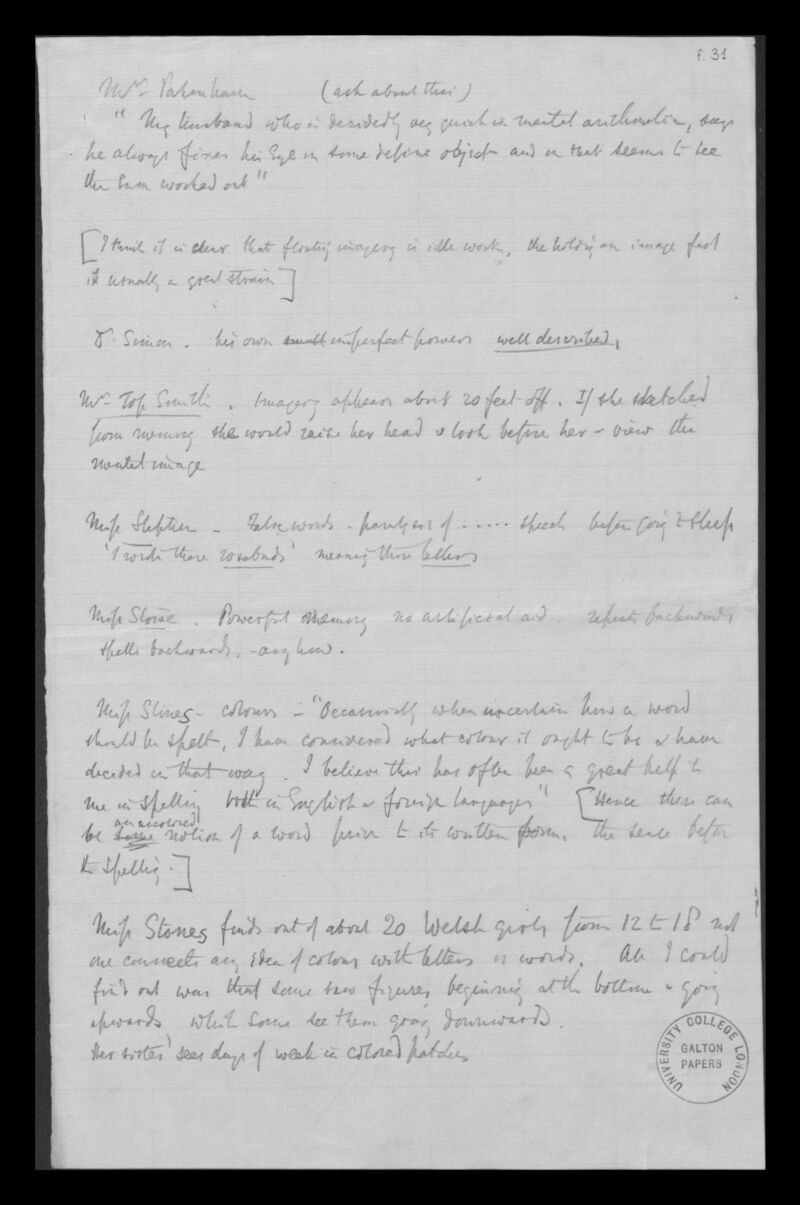 f. 31
Mrs Pakenham (ask about this)
"My husband who is decidedly very quick in mental arithmetic, says
he always fixes his Eye on some define object and on that seems to see
the Sum worked out"
[I think it is clear that floating imagery is idle work, the holding an image fast
is usually a great strain]
Dr Simon. his own small imperfect powers well described,
Mrs Top Smith. Imagery appears about 20 feet off. If she sketched
from memory she would raise her head & look before her & view the
mental image
Miss Stephen - False words - of ..... speech before going to sleep
'I wrote those rosebuds' meaning those letters
Miss Stone. Powerful memory no artificial aid. repeats backwards,
spells backwards, - anyhow.
Miss Stones - colours - "Occasionally when uncertain how a word
should be spelt, I have considered what colour it ought to be & have
decided in that way. I believe this has often been a great help to
me in spelling both in English & foreign languages" [Hence there can
an uncolored
be some notion of a word prior to its written form, the sense before
the spelling.]
Miss Stones finds out of about 20 Welsh girls from 12 to 18 not
one connects any idea of colour with letters or words. All I could
find out was that some saw figures beginning at the bottom & going
upwards whilst some see them going downwards.
Her sister sees days of week in colored patches
UNIVERSITY COLLEGE LONDON
GALTON
PAPERS